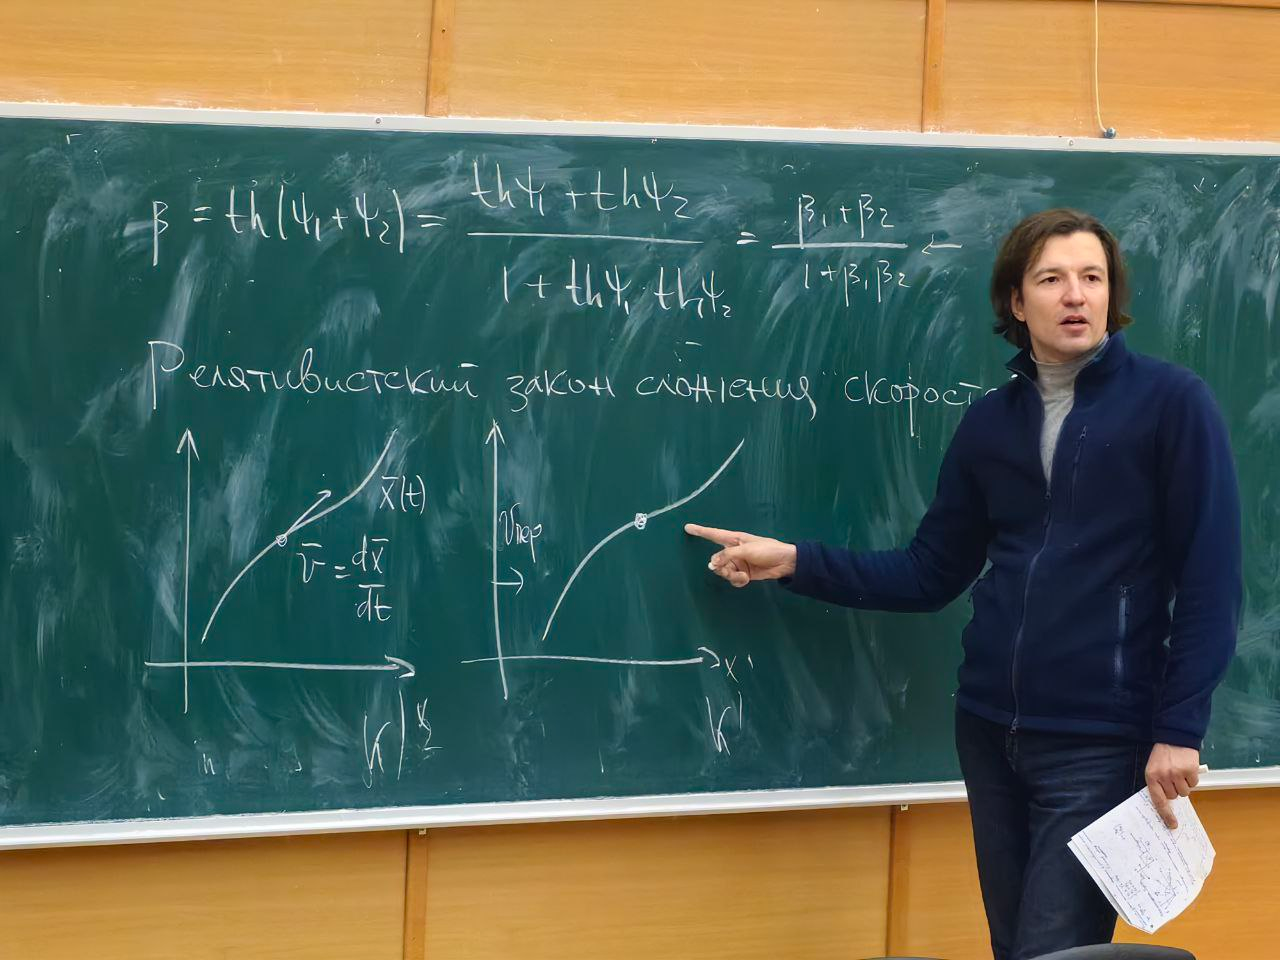 β = th(ψ₁+ψ₂) = (thψ₁ + thψ₂)/(1 + thψ₁ · thψ₂) = (β₁+β₂)/(1+β₁β₂) ←
Релятивистский закон сложения
x̄(t)
v̄ = dx̄/dt
Vпер
x'
K
K'